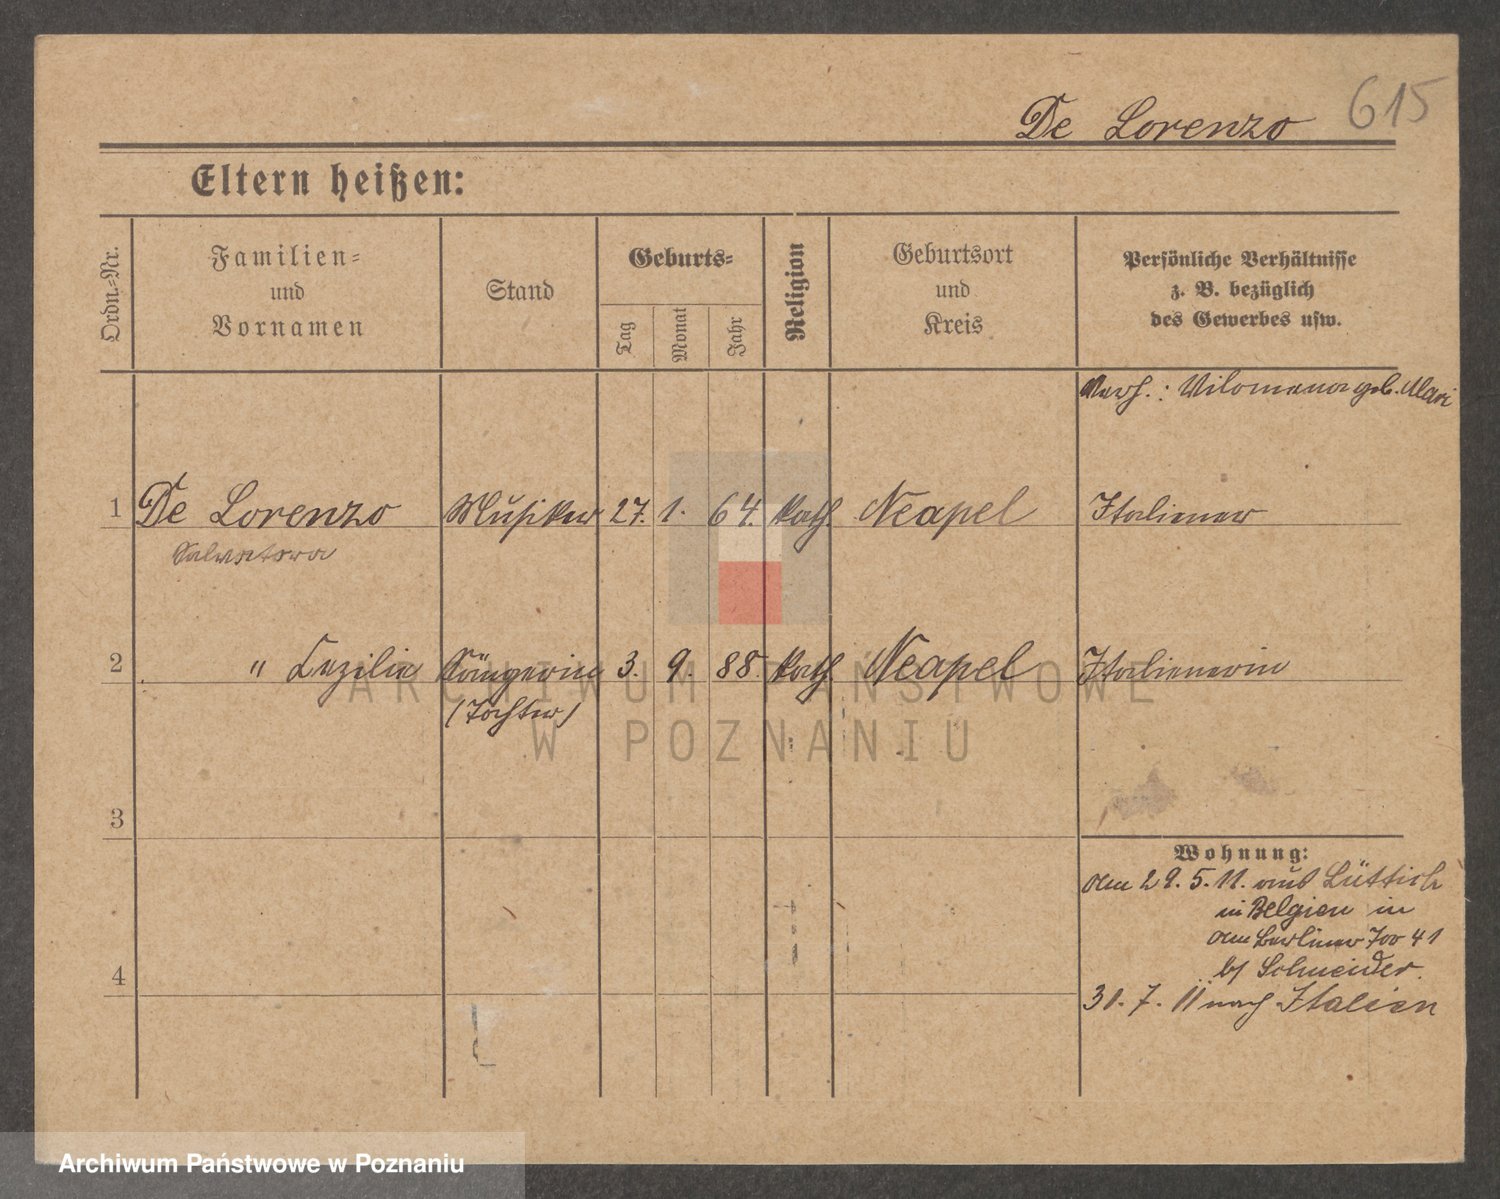 De Lorenzo 615
Eltern heißen:
Ordn.-Nr.
Familien-
und
Vornamen
Stand
Geburts-
Tag
Monat
Jahr
Religion
Geburtsort
und
Kreis
Persönliche Verhältnisse
z. B. bezüglich
des Gewerbes usw.
geb.
1 De Lorenzo Musiker 27. 1. 64. kath. Neapel Italiener
Salvatora
2 " Cezilie Sängerin 3. 9. 88. kath. Neapel Italienerin
(Tochter)
3
4
Wohnung:
am 29.5.11. aus Lüttich
in Belgien in
am Berliner Tor 41
b/ Schneider.
31. 7. 11 nach Italien
ARCHIWUM PAŃSTWOWE
W POZNANIU
Archiwum Państwowe w Poznaniu